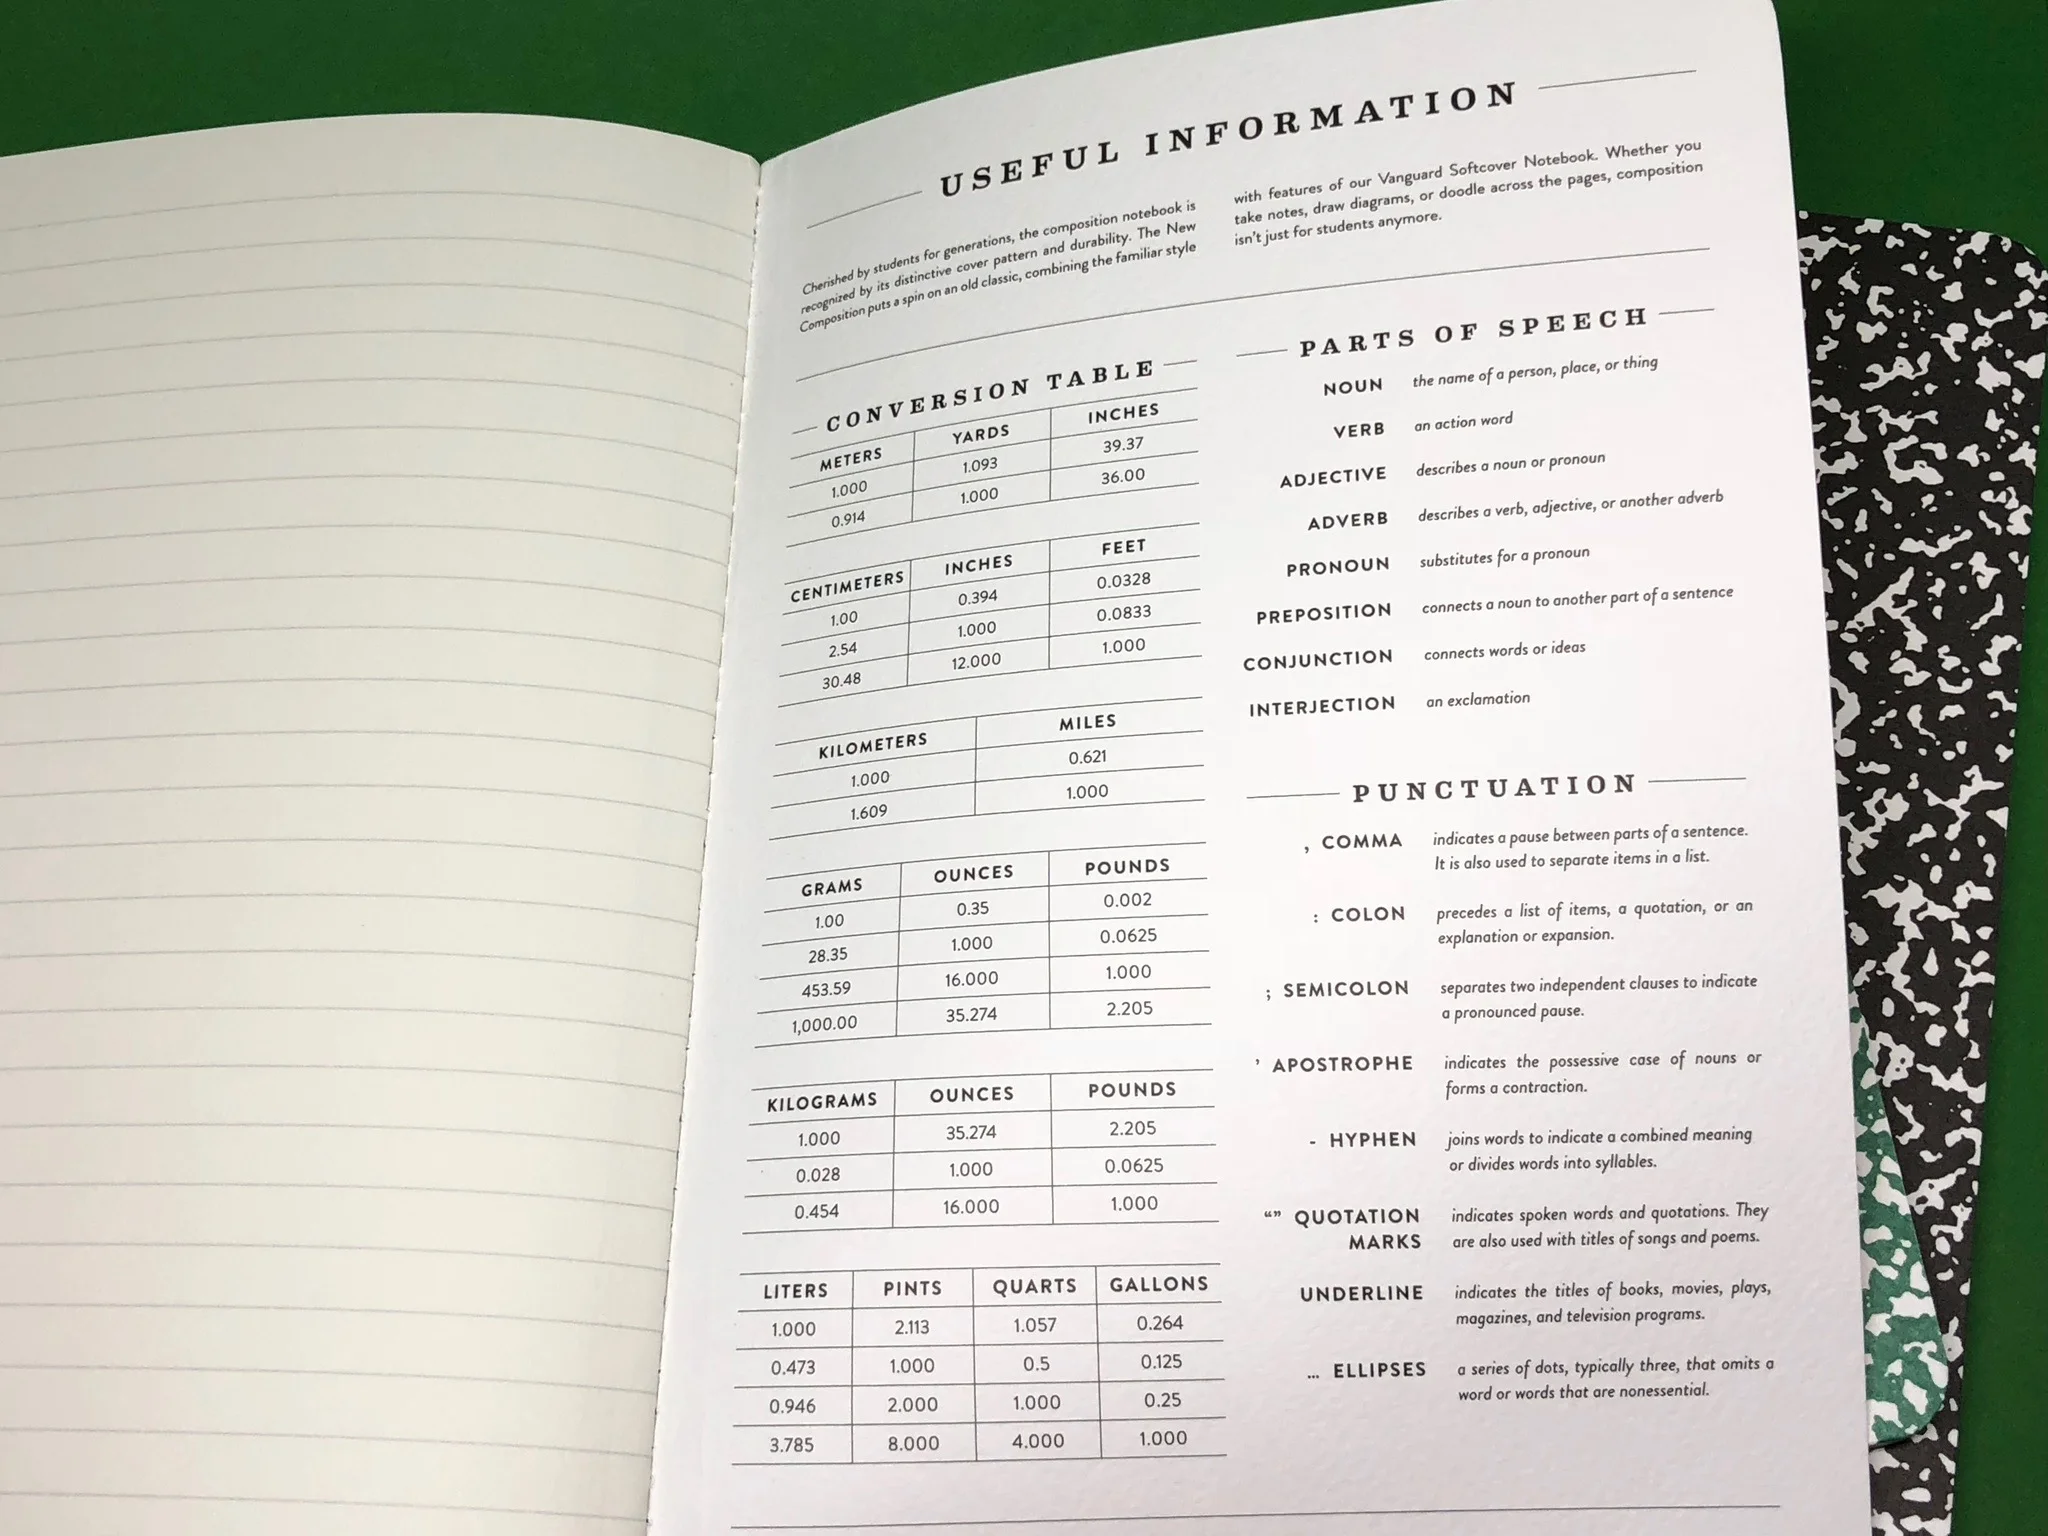 USEFUL INFORMATION
Cherished by students for generations, the composition notebook is
recognized by its distinctive cover pattern and durability. The New
Composition puts a spin on an old classic, combining the familiar style
with features of our Vanguard Softcover Notebook. Whether you
take notes, draw diagrams, or doodle across the pages, composition
isn't just for students anymore.
CONVERSION TABLE
METERS YARDS INCHES
1.000 1.093 39.37
0.914 1.000 36.00
CENTIMETERS INCHES FEET
1.00 0.394 0.0328
2.54 1.000 0.0833
30.48 12.000 1.000
KILOMETERS MILES
1.000 0.621
1.609 1.000
GRAMS OUNCES POUNDS
1.00 0.35 0.002
28.35 1.000 0.0625
453.59 16.000 1.000
1,000.00 35.274 2.205
KILOGRAMS OUNCES POUNDS
1.000 35.274 2.205
0.028 1.000 0.0625
0.454 16.000 1.000
LITERS PINTS QUARTS GALLONS
1.000 2.113 1.057 0.264
0.473 1.000 0.5 0.125
0.946 2.000 1.000 0.25
3.785 8.000 4.000 1.000
PARTS OF SPEECH
NOUN the name of a person, place, or thing
VERB an action word
ADJECTIVE describes a noun or pronoun
ADVERB describes a verb, adjective, or another adverb
PRONOUN substitutes for a pronoun
PREPOSITION connects a noun to another part of a sentence
CONJUNCTION connects words or ideas
INTERJECTION an exclamation
PUNCTUATION
, COMMA indicates a pause between parts of a sentence.
It is also used to separate items in a list.
: COLON precedes a list of items, a quotation, or an
explanation or expansion.
; SEMICOLON separates two independent clauses to indicate
a pronounced pause.
’ APOSTROPHE indicates the possessive case of nouns or
forms a contraction.
- HYPHEN joins words to indicate a combined meaning
or divides words into syllables.
“” QUOTATION indicates spoken words and quotations. They
MARKS are also used with titles of songs and poems.
UNDERLINE indicates the titles of books, movies, plays,
magazines, and television programs.
... ELLIPSES a series of dots, typically three, that omits a
word or words that are nonessential.